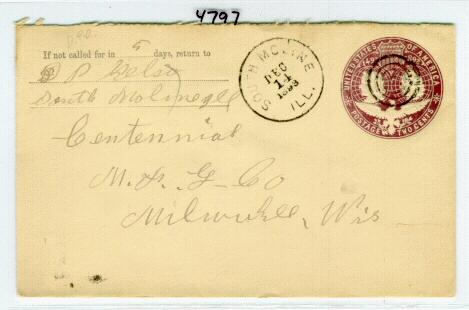 4797
If not called for in 5 days, return to
South Moline Ill
SOUTH MOLINE
DEC
14
1893
ILL.
UNITED STATES OF AMERICA
POSTAGE TWO CENTS
Centennial
M. & G- Co
Milwukee, Wis-